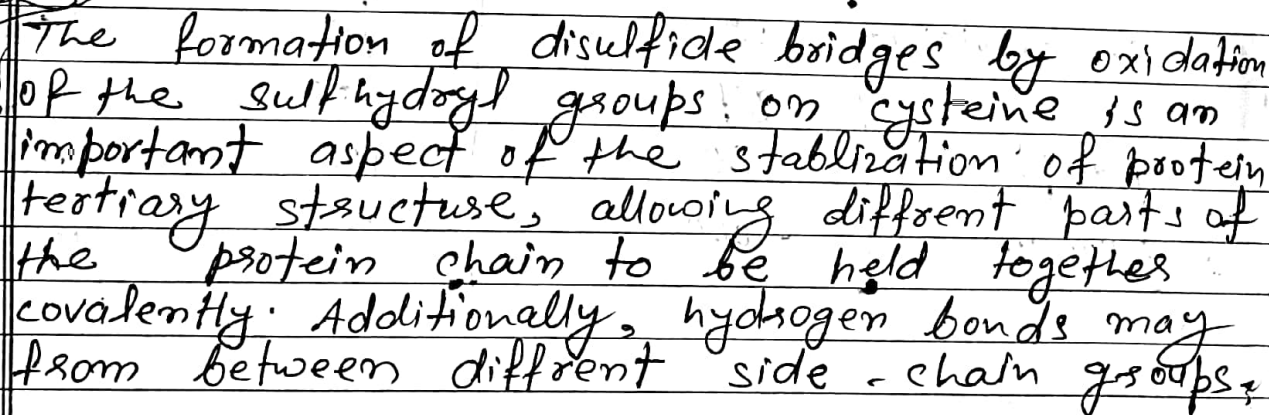 The formation of disulfide bridges by oxidation
of the sulfhydryl groups on cysteine is an
important aspect of the stablization of protein
tertiary structure, allowing diffrent parts of
the protein chain to be held together
covalently. Additionally, hydrogen bonds may
from between diffrent side-chain groups.